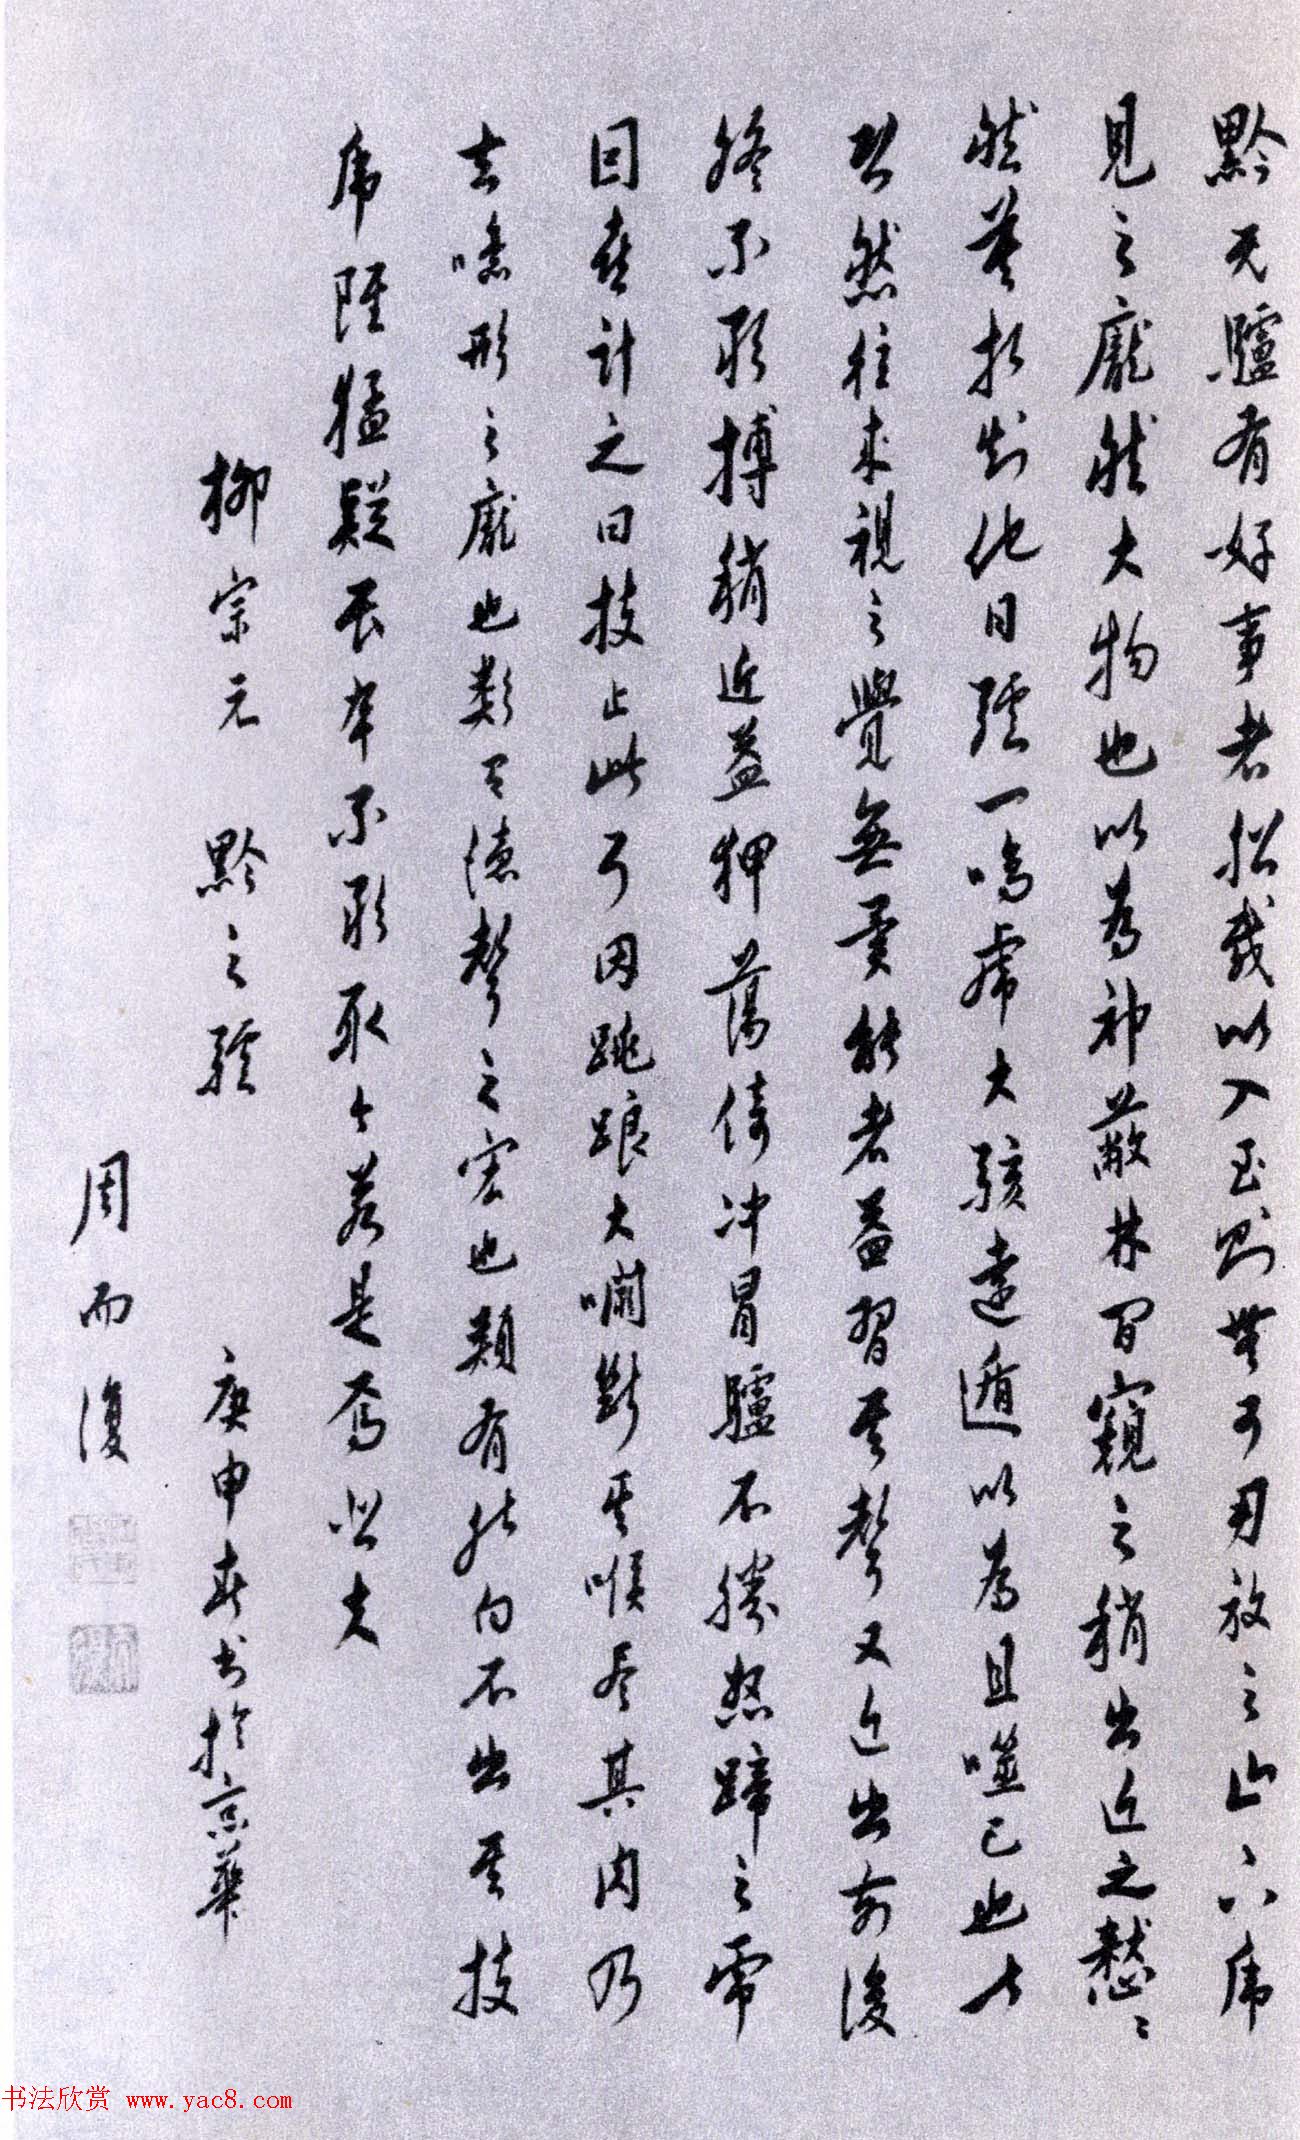 黔无驢有好事者船載以入至則無可用放之山下虎
見之龐然大物也以為神蔽林間窺之稍出近之憖〻
然莫相知他日驢一鳴虎大駭遠遁以為且噬己也甚
恐然往來視之覺無異能者益習其聲又近出前後
終不敢搏稍近益狎蕩倚冲冒驢不勝怒蹄之虎
因喜計之曰技止此耳因跳踉大㘚斷其喉尽其肉乃
去噫形之龐也類有德聲之宏也類有能向不出其技
虎雖猛疑畏卒不敢取今若是焉悲夫
柳宗元 黔之驢 庚申春書於京華
周而復
书法欣赏 www.yac8.com